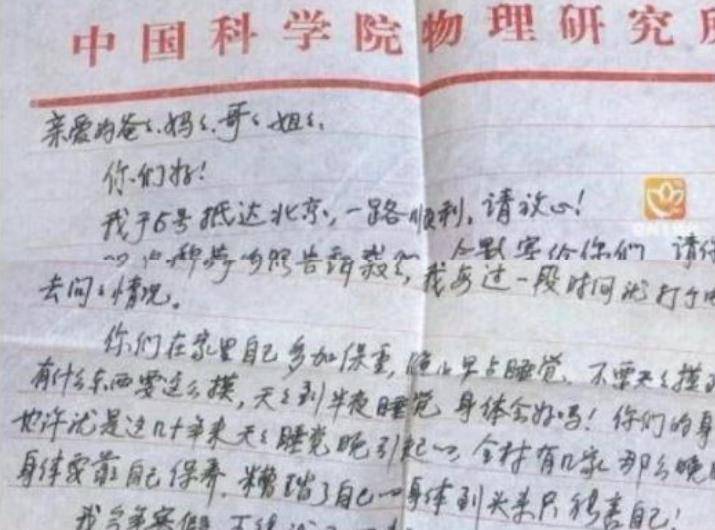 中国科学院物理研究所
亲爱的爸爸、妈妈、哥哥、姐姐、
你们好!
我于6号抵达北京,一路顺利,请放心!
寄给你们 请
去问问情况。 我每过一段时间就打个
你们在家里自己多加保重,晚上早点睡觉、不要天天摸
有什么东西要这么摸,天天到半夜睡觉 身体会好吗!你们的身
也许就是这几十年来天天睡觉晚引起的,全村有几家那么晚
身体要靠自己保养,糟蹋了自己的身体到头来只能害自己!
我今年寒假